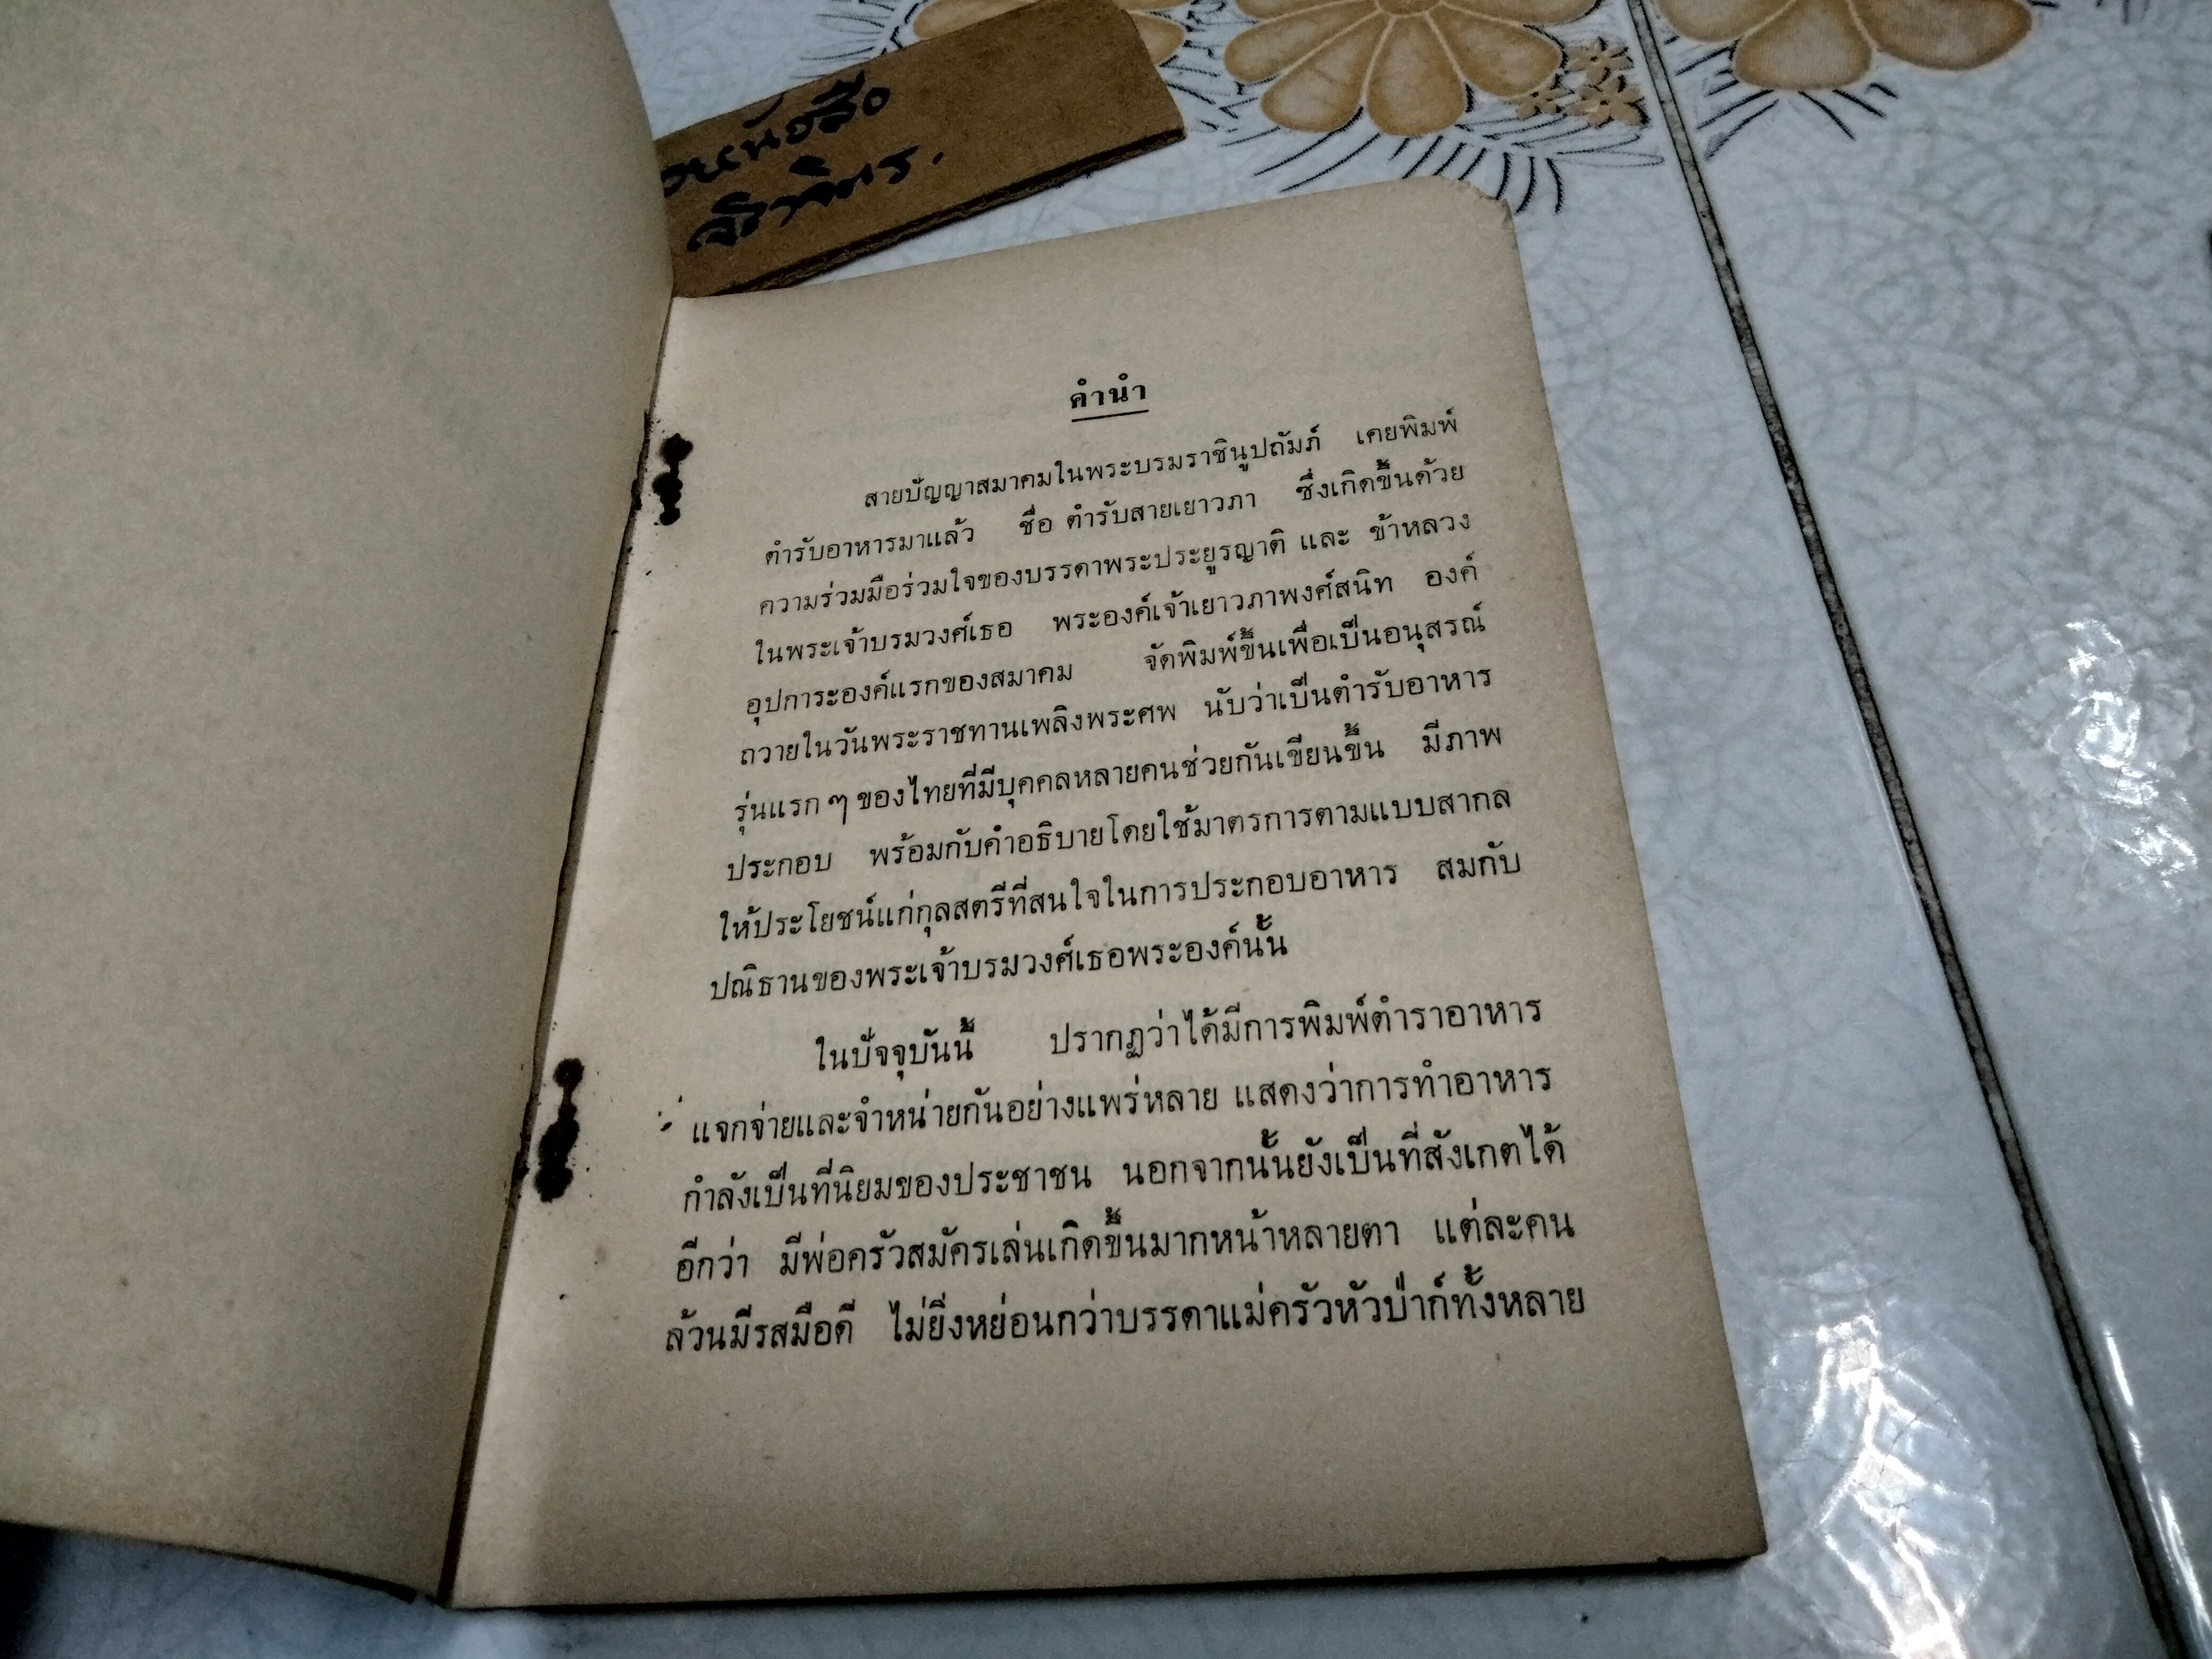 คำนำ
สายปัญญาสมาคมในพระบรมราชินูปถัมภ์ เคยพิมพ์
ตำรับอาหารมาแล้ว ชื่อ ตำรับสายเยาวภา ซึ่งเกิดขึ้นด้วย
ความร่วมมือร่วมใจของบรรดาพระประยูรญาติ และ ข้าหลวง
ในพระเจ้าบรมวงศ์เธอ พระองค์เจ้าเยาวภาพงศ์สนิท องค์
อุปการะองค์แรกของสมาคม จัดพิมพ์ขึ้นเพื่อเป็นอนุสรณ์
ถวายในวันพระราชทานเพลิงพระศพ นับว่าเป็นตำรับอาหาร
รุ่นแรก ๆ ของไทยที่มีบุคคลหลายคนช่วยกันเขียนขึ้น มีภาพ
ประกอบ พร้อมกับคำอธิบายโดยใช้มาตรการตามแบบสากล
ให้ประโยชน์แก่กุลสตรีที่สนใจในการประกอบอาหาร สมกับ
ปณิธานของพระเจ้าบรมวงศ์เธอพระองค์นั้น
ในปัจจุบันนี้ ปรากฏว่าได้มีการพิมพ์ตำราอาหาร
แจกจ่ายและจำหน่ายกันอย่างแพร่หลาย แสดงว่าการทำอาหาร
กำลังเป็นที่นิยมของประชาชน นอกจากนั้นยังเป็นที่สังเกตได้
อีกว่า มีพ่อครัวสมัครเล่นเกิดขึ้นมากหน้าหลายตา แต่ละคน
ล้วนมีรสมือดี ไม่ยิ่งหย่อนกว่าบรรดาแม่ครัวหัวป่าก์ทั้งหลาย